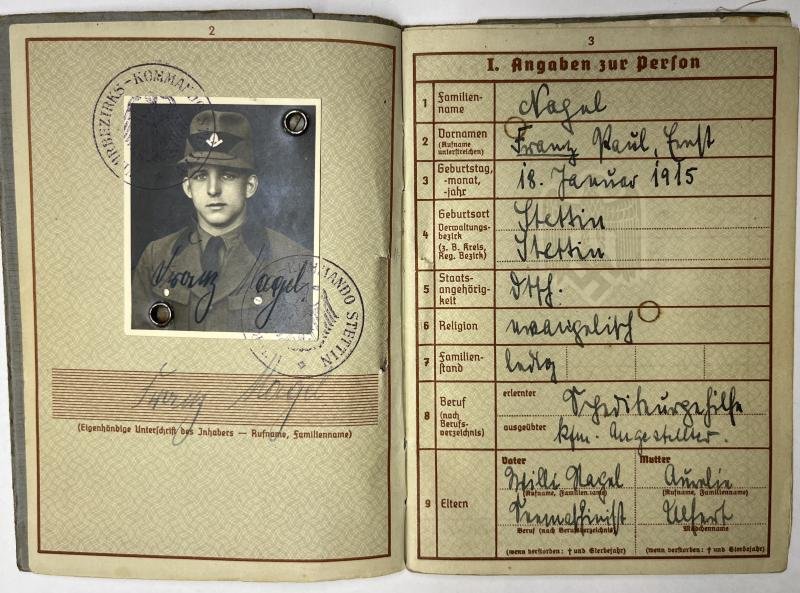 2
WEHRBEZIRKS-KOMMANDO
Franz Nagel
KOMMANDO STETTIN
Franz Nagel
(Eigenhändige Unterschrift des Inhabers — Rufname, Familienname)
3
I. Angaben zur Person
1 Familien-
name
Nagel
2 Vornamen
(Rufname
unterstreichen)
Franz Paul, Ernst
3 Geburtstag,
-monat,
-jahr
18. Januar 1915
4 Geburtsort
Verwaltungs-
bezirk
(z. B. Kreis,
Reg. Bezirk)
Stettin
Stettin
5 Staats-
angehörig-
keit
Dtsch.
6 Religion
evangelisch
7 Familien-
stand
ledig
8 Beruf
(nach
Berufs-
verzeichnis)
erlernter
Spediteurgehilfe
ausgeübter
kfm. Angestellter.
9 Eltern
Vater Mutter
Willi Nagel Aurelie
(Rufname, Familienname) (Rufname, Familienname)
Seemaschinist
Beruf (nach Berufsverzeichnis) Mädchenname
(wenn verstorben: † und Sterbejahr) (wenn verstorben: † und Sterbejahr)